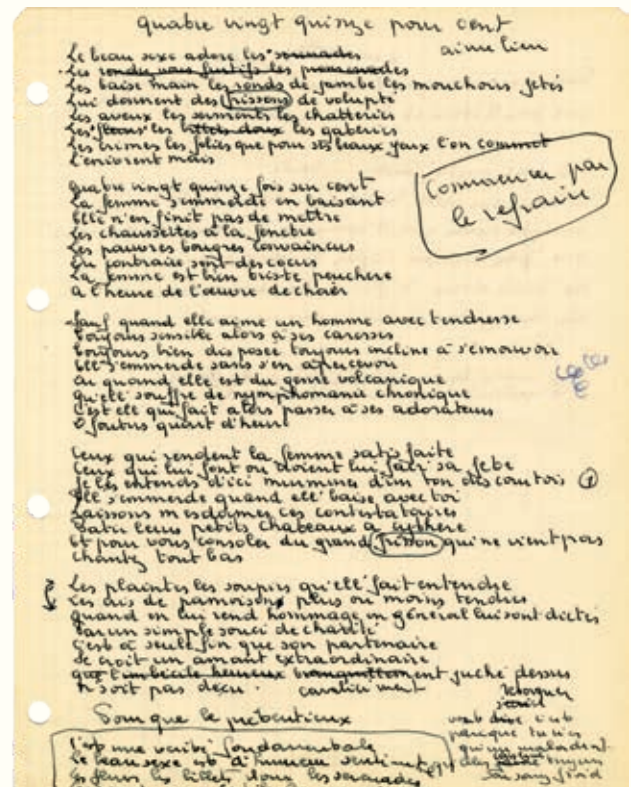 quatre vingt quinze pour cent
aime bien
Le beau sexe adore les serenades
Les rendez vous furtifs les promenades
Les baise main les ronds de jambe les mouchoirs jetés
Lui donnent des frissons de volupté
Les aveux les serments les chatteries
Les fleurs les billets doux les gateries
Les crimes les folies que pour ses beaux yeux l'on commet
L'enivrent mais
Commencer par
le refrain
Quatre vingt quinze fois sur cent
La femme s'emmerde en baisant
Elle n'en finit pas de mettre
Les chaussettes à la fenetre
Les pauvres bougres convaincus
Du contraire sont des cocus
La femme est bien triste peuchere
A l'heure de l'œuvre de chair
Sauf quand elle aime un homme avec tendresse
Toujours sensible alors à ses caresses
Toujours bien disposée toujours incline à s'emouvoir
Ell' s'emmerde sans s'en apercevoir
Ou quand elle est du genre volcanique
Qu'ell' souffre de nymphomanie chronique
C'est ell' qui fait alors passer à ses adorateurs
D'foutus quart d'heur'
Ceux qui rendent la femme satisfaite
Ceux qui lui font ou croient lui fair' sa fete
Je les entends d'ici murmurer d'un ton discourtois
Ell' s'emmerde quand ell' baise avec toi
Laissons mesdames ces contestataires
Batir leurs petits chateaux à cythere
Et pour vous consoler du grand frisson qui ne vient pas
Chantez tout bas
Les plaintes les soupirs qu'ell' fait entendre
Les cris de pamoison plus ou moins tendres
Quand on lui rend hommage en général lui sont dictés
Par un simple souci de charité
C'est à seule fin que son partenaire
Se croit un amant extraordinaire
Que l'imbecile heureux tranquillement juché dessus
N'soit pas deçu. cavalierment
Son que le pretentieux
C'est une verité fondamentale
Le beau sexe est d'humeur sentimentale
Les fleurs les billets doux les serenades